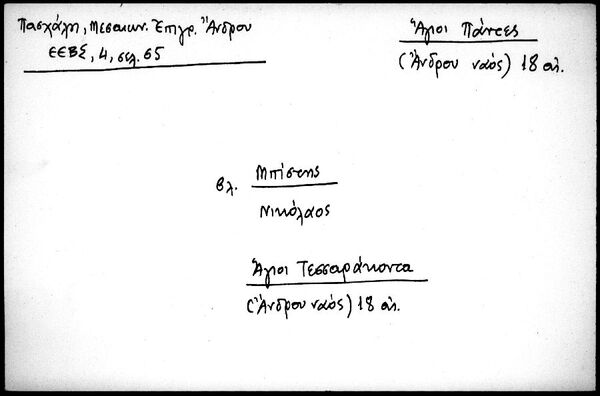 Πασχάλη, Μεσαιων. Ἐπιγρ. Ἄνδρου
ΕΕΒΣ, 4, σελ. 65
Ἅγιοι Πάντες
(Ἄνδρου ναός) 18 αἰ.
βλ. Μπίστης
Νικόλαος
Ἅγιοι Τεσσαράκοντα
(Ἄνδρου ναός) 18 αἰ.